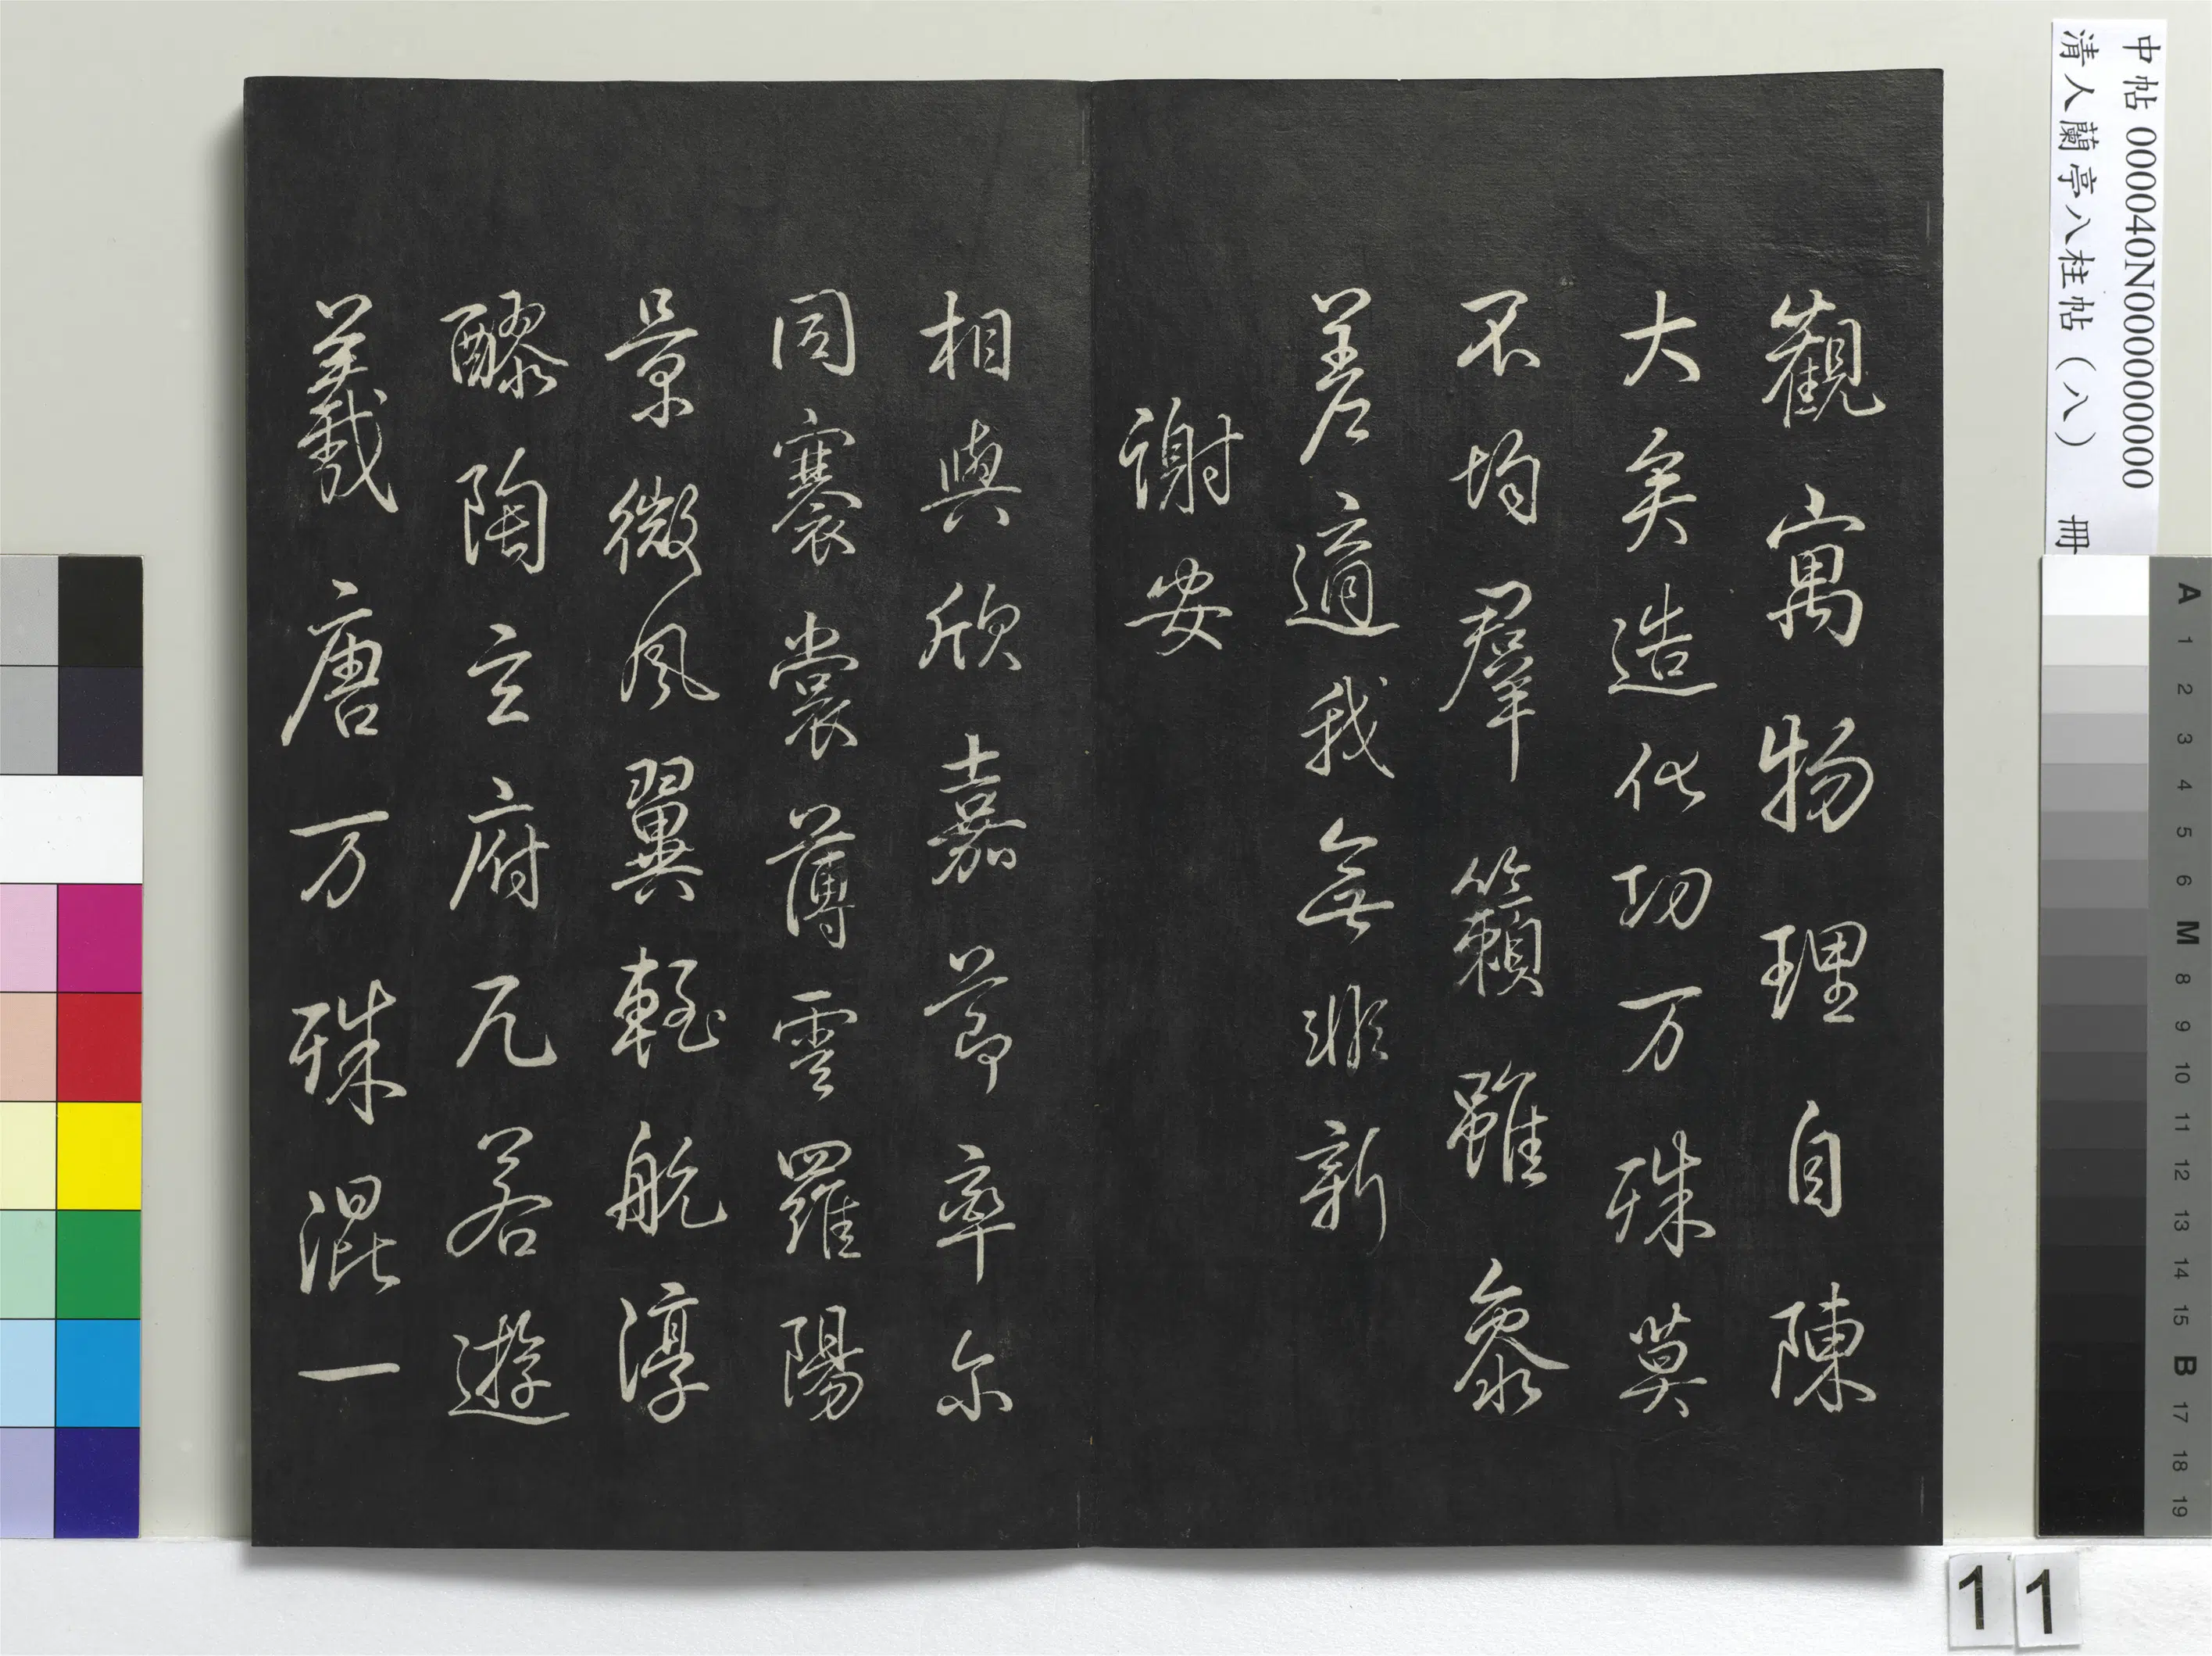 觀寓物理自陳
大矣造化功万殊莫
不均羣籟雖參
差適我無非新
謝安
相與欣嘉莭率尔
同褰裳薄雲羅陽
景微風翼輕航淳
醪陶玄府兀若遊
羲唐万殊混一
中帖000040N000000000
清人蘭亭八柱帖(八) 冊
A
1
2
3
4
5
6
M
8
9
10
11
12
13
14
15
B
17
18
19
1 1